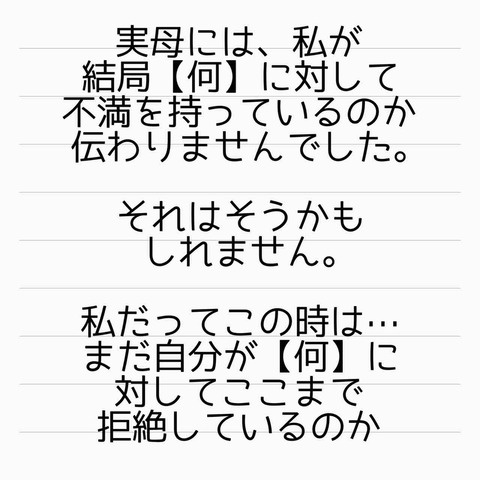 実母には、私が
結局【何】に対して
不満を持っているのか
伝わりませんでした。
それはそうかも
しれません。
私だってこの時は…
まだ自分が【何】に
対してここまで
拒絶しているのか